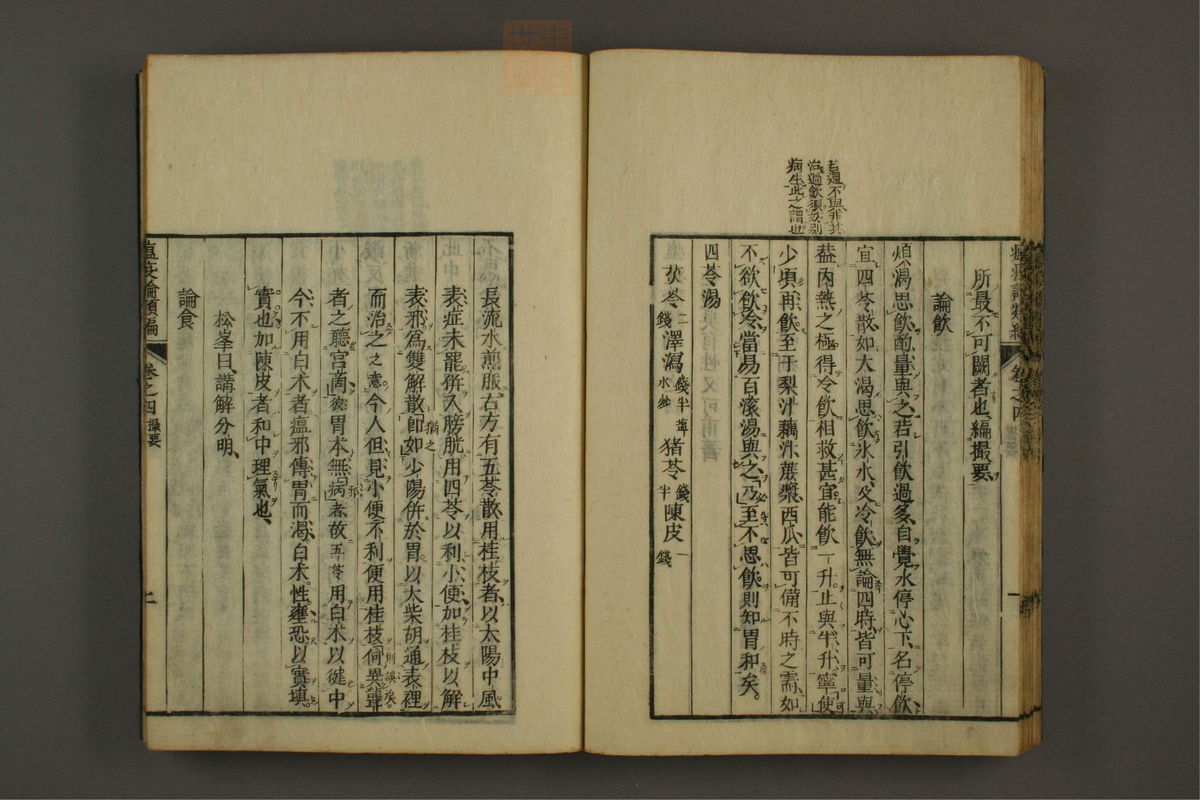 瘟疫論類編 卷之四 撮要
所最不可闕者也編撮要
論飲
煩渴思飲酌量與之若引飲過多自覺水停心下名停飲
宜四苓散如大渴思飲氷水及冷飲無論四時皆可量與
蓋內熱之極得冷飲相救甚宜能飲一升止與半升寧使
少頃再飲至于梨汁藕汁蔗漿西瓜皆可備不時之需如
不欲飲冷當易百滾湯與之乃至不思飲則知胃和矣
若過不與非其
治過飲須防別
病生此之謂也
四苓湯
茯苓二錢 澤瀉錢半 猪苓錢半 陳皮一錢
長流水煎服右方有五苓散用桂枝者以太陽中風
表症未罷併入膀胱用四苓以利小便加桂枝以解
表邪爲雙解散即如少陽併於胃以大柴胡通表裡
而治之之意今人但見小便不利便用桂枝何異聾
者之聽宮商彼胃本無病者故五苓用白朮以健中
今不用白朮者瘟邪傳胃而渴白朮性壅恐以實填
實也加陳皮者和中理氣也
松峯曰講解分明
論食
瘟疫論類編 卷之四 撮要